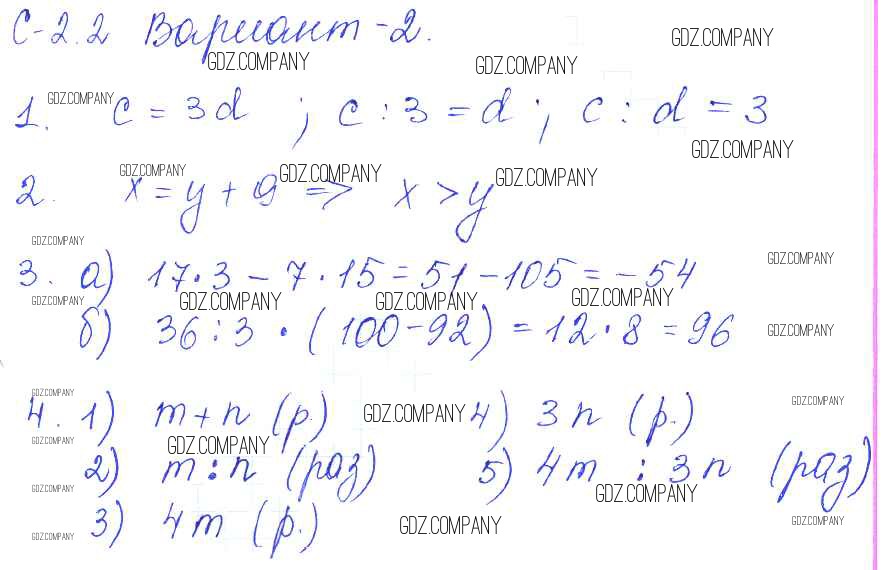 С-2.2 Вариант-2.
GDZ.COMPANY GDZ.COMPANY GDZ.COMPANY
1. GDZ.COMPANY c = 3d ; c : 3 = d ; c : d = 3
GDZ.COMPANY
GDZ.COMPANY GDZ.COMPANY GDZ.COMPANY
2. x = y + 9 => x > y
GDZ.COMPANY GDZ.COMPANY
3. а) 17 · 3 - 7 · 15 = 51 - 105 = - 54
GDZ.COMPANY GDZ.COMPANY GDZ.COMPANY GDZ.COMPANY
б) 36 : 3 · (100 - 92) = 12 · 8 = 96 GDZ.COMPANY
GDZ.COMPANY GDZ.COMPANY
4. 1) m + n (р.) GDZ.COMPANY 4) 3n (р.)
GDZ.COMPANY GDZ.COMPANY
2) m : n (раз) 5) 4m : 3n (раз)
GDZ.COMPANY GDZ.COMPANY
3) 4m (р.) GDZ.COMPANY GDZ.COMPANY
GDZ.COMPANY